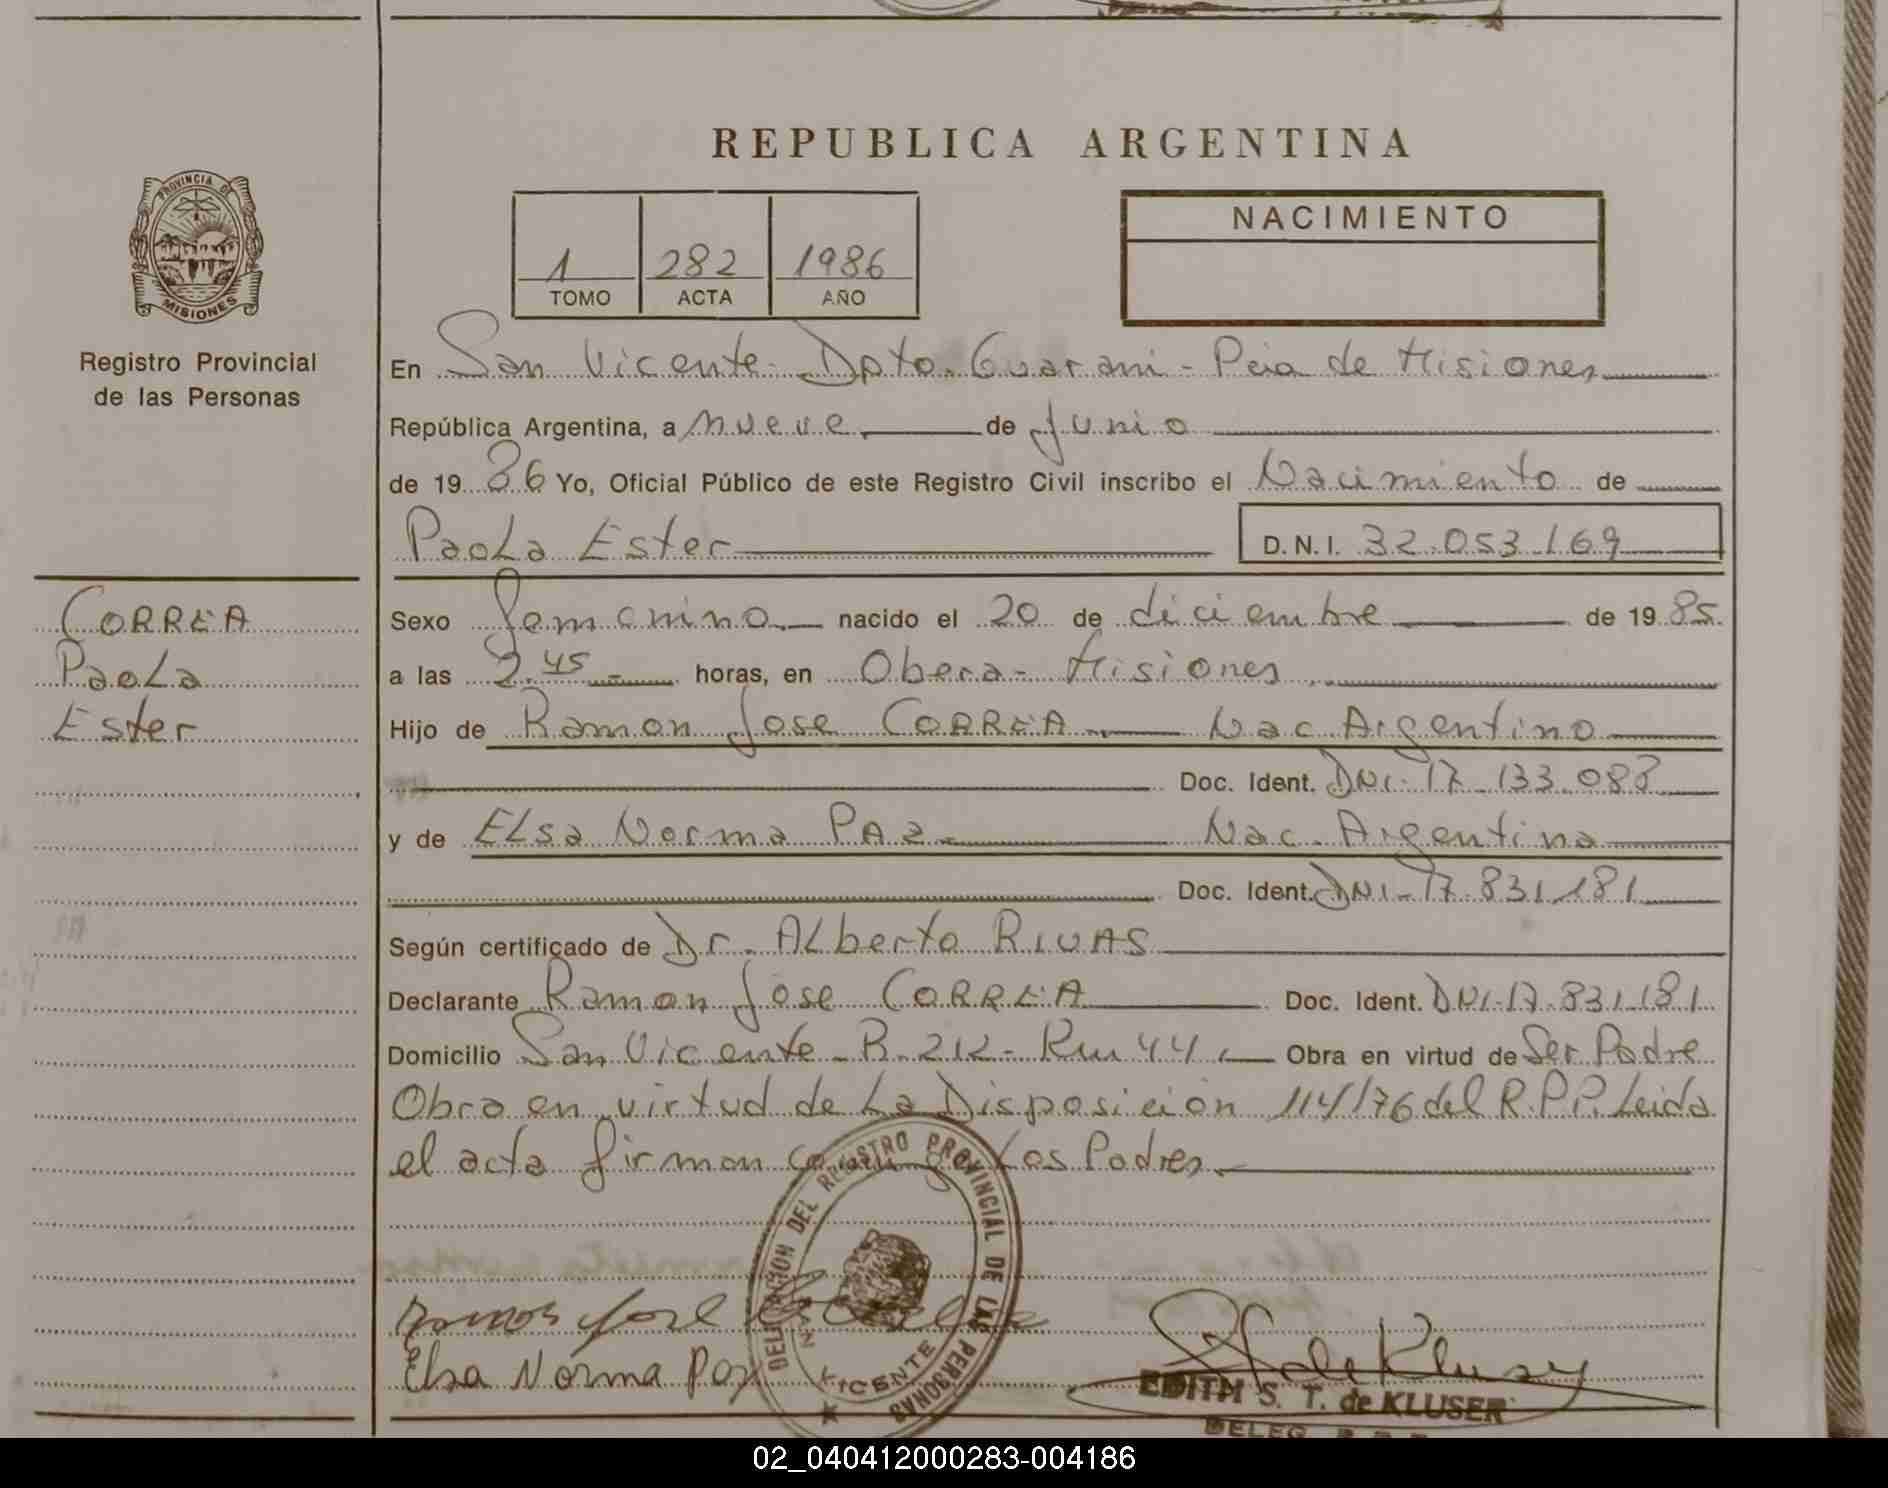 REPUBLICA ARGENTINA
PROVINCIA DE
MISIONES
Registro Provincial
de las Personas
1 282 1986
TOMO ACTA AÑO
NACIMIENTO
En San Vicente - Dpto. Guarani - Pcia de Misiones
República Argentina, a nueve de Junio
de 19 86 Yo, Oficial Público de este Registro Civil inscribo el Nacimiento de
Paola Ester D.N.I. 32.053.169
CORREA
Paola
Ester
Sexo Femenino nacido el 20 de diciembre de 19 85.
a las 2.45 horas, en Obera - Misiones
Hijo de Ramon Jose CORREA Nac Argentino
Doc. Ident. DNI-17.133.083
y de Elsa Norma PAZ Nac. Argentina
Doc. Ident. DNI-17.831.181
Según certificado de Dr. Alberto RIVAS
Declarante Ramon Jose CORREA Doc. Ident. DNI-17.831.181
Domicilio San Vicente - R. 212 - Km 44 Obra en virtud de Ser Padre
Obra en virtud de La Disposición 114/76 del R.P.P. Leida
el acta firman Los Padres
DELEGACION DEL REGISTRO PROVINCIAL DE LAS PERSONAS
VICENTE
Elsa Norma Paz
de Kluser
EDITH S. T. de KLUSER
DELEG.
02_040412000283-004186